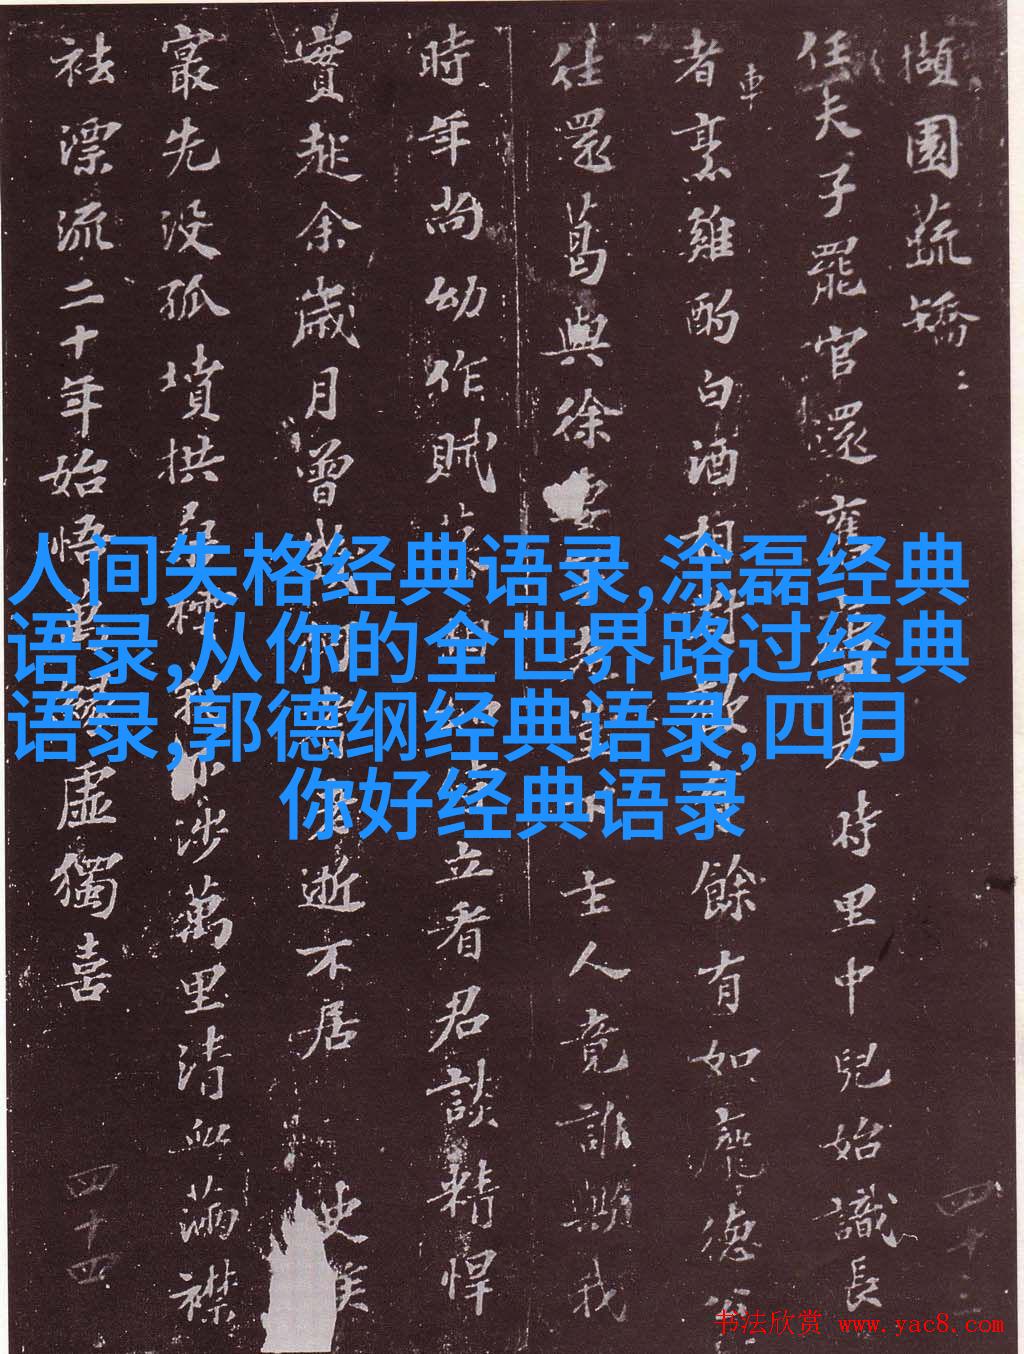 擷園蔬
任夫子罷官還見時里中兒始識長
者烹雞酌白酒相對歡有餘有如龐德公
車
往還葛與徐妻主人竟誰歟我
時年尚幼作賦立看君談精悍
實起余歲月曾幾逝不居史侯
最先没孤墳拱涉萬里清血滿襟
袪漂流二十年始悟虛獨喜
四十四
人间失格经典语录,涂磊经典
语录,从你的全世界路过经典
语录,郭德纲经典语录,四月
你好经典语录
书法欣赏 www.yac8.com